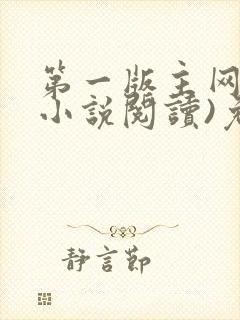 第一版主网
小説閱讀)免
静言節